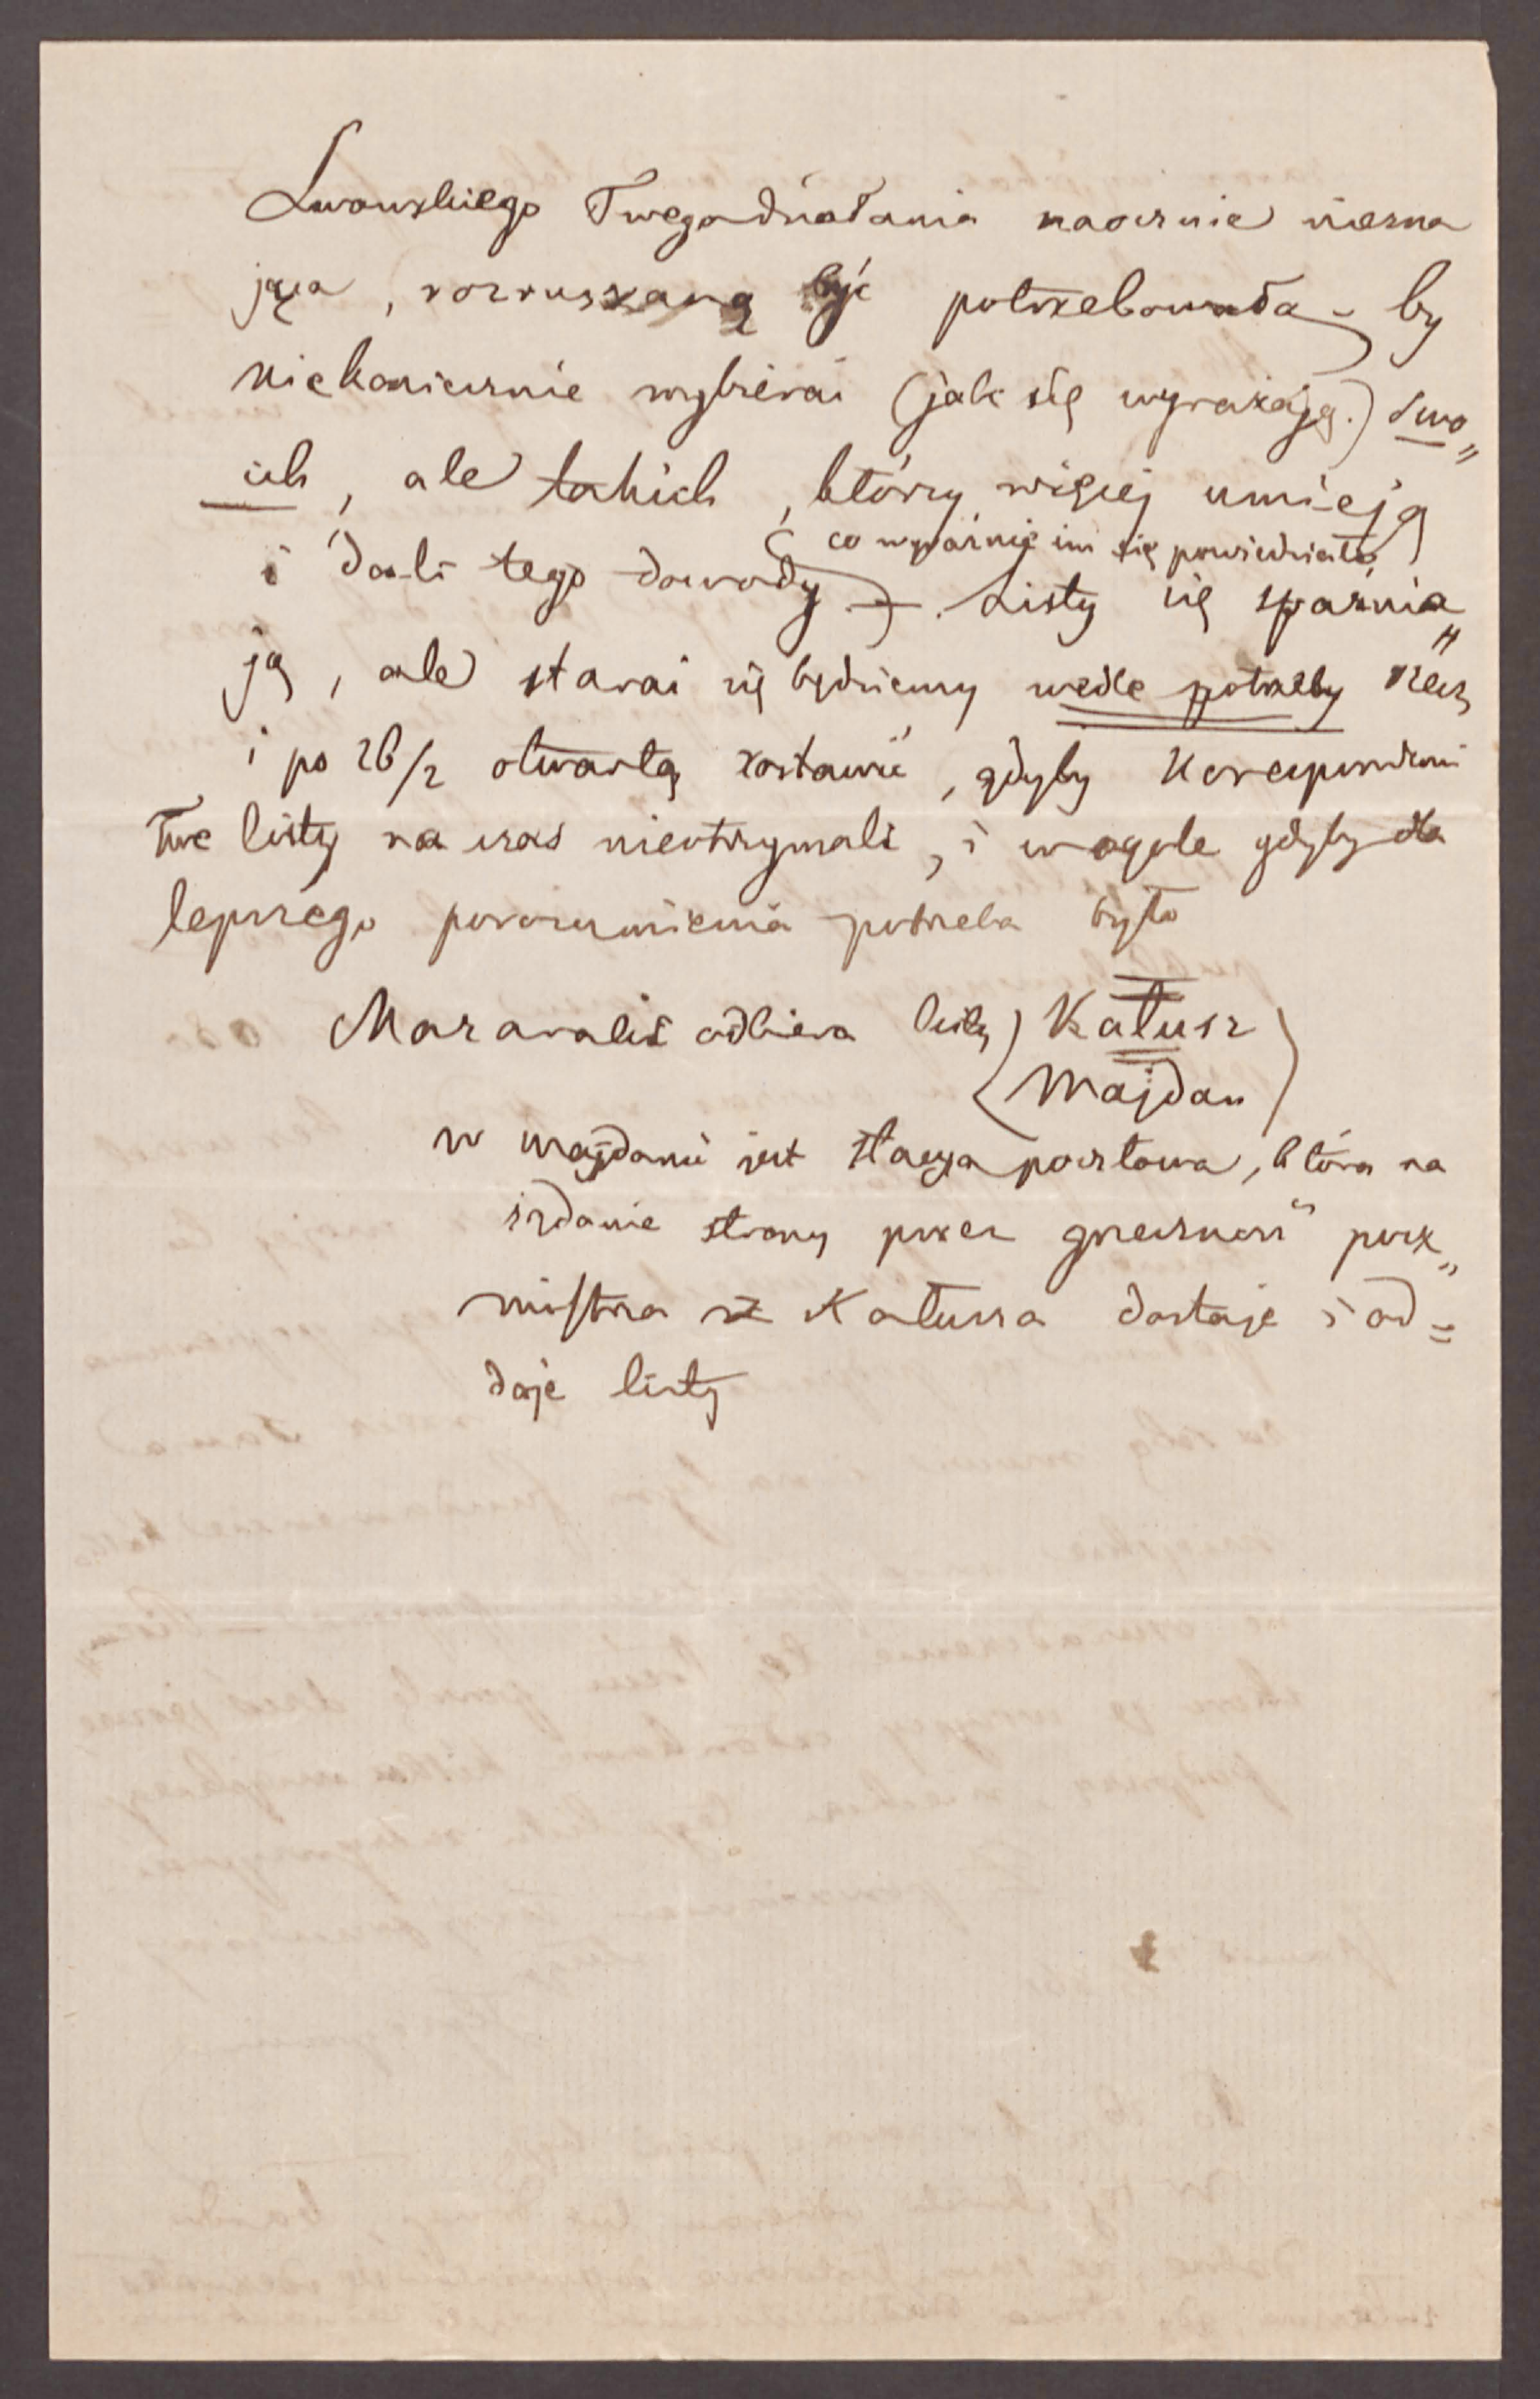 Lwowskiego Twego działania naocznie niezna
jąca, rozruszaną być potrzebowała - by
niekoniecznie wybierać (jak się wyrażają.) swo„
ich, ale takich, którzy więcej umieją
(co wyraźnie im się powiedziało)
i dali tego dowody. Listy się spaźnia„
ją, ale starać się będziemy wedle potrzeby rzecz
i po 26/2 otwartą zostawić, gdyby Korespondenci
Twe listy na czas nieotrzymali, i wogóle gdyby dla
lepszego porozumienia potrzeba było
odbiera listy Kałusz
Majdan
w Majdanie jest stacya pocztowa, która na
żądanie strony przez grzeczność pocz„
mistrza z Kałusza dostaje i od=
daje listy